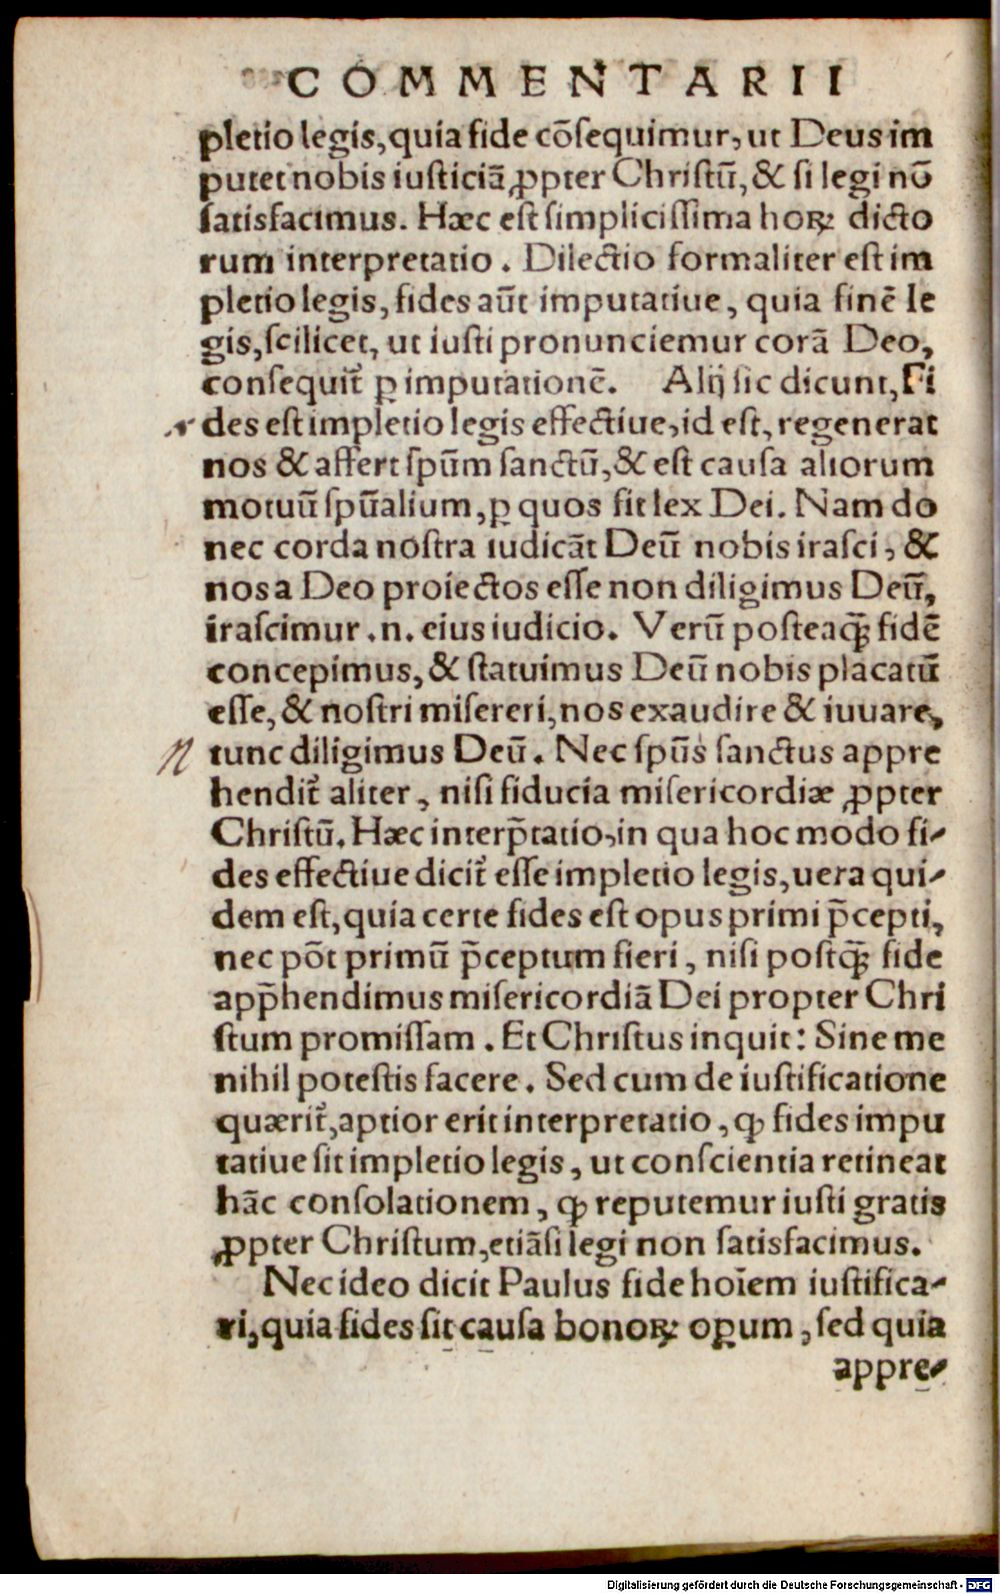 COMMENTARII
pletio legis, quia fide cōsequimur, ut Deus im
putet nobis iusticiā ꝓpter Christū, & si legi nō
satisfacimus. Hæc est simplicissima hoꝝ dicto
rum interpretatio. Dilectio formaliter est im
pletio legis, fides aūt imputatiue, quia finē le
gis, scilicet, ut iusti pronunciemur corā Deo,
consequit̃ ꝑ imputationē. Alij sic dicunt, Fi
des est impletio legis effectiue, id est, regenerat
nos & affert spūm sanctū, & est causa aliorum
motuū spūalium, ꝑ quos fit lex Dei. Nam do
nec corda nostra iudicāt Deū nobis irasci, &
nos a Deo proiectos esse non diligimus Deū,
irascimur .n. eius iudicio. Verū posteaꝗ̃ fidē
concepimus, & statuimus Deū nobis placatū
esse, & nostri misereri, nos exaudire & iuuare,
tunc diligimus Deū. Nec spūs sanctus appre
hendit̃ aliter, nisi fiducia misericordiæ ꝓpter
Christū. Hæc interp̄tatio, in qua hoc modo fi-
des effectiue dicit̃ esse impletio legis, uera qui-
dem est, quia certe fides est opus primi p̄cepti,
nec pōt primū p̄ceptum fieri, nisi postꝗ̃ fide
app̄hendimus misericordiā Dei propter Chri
stum promissam. Et Christus inquit: Sine me
nihil potestis facere. Sed cum de iustificatione
quærit̃, aptior erit interpretatio, ꝙ fides impu
tatiue sit impletio legis, ut conscientia retineat
hāc consolationem, ꝙ reputemur iusti gratis
ꝓpter Christum, etiāsi legi non satisfacimus.
Nec ideo dicit Paulus fide hoīem iustifica-
ri, quia fides sit causa bonoꝝ oꝑum, sed quia
appre-
Digitalisierung gefördert durch die Deutsche Forschungsgemeinschaft - DFG